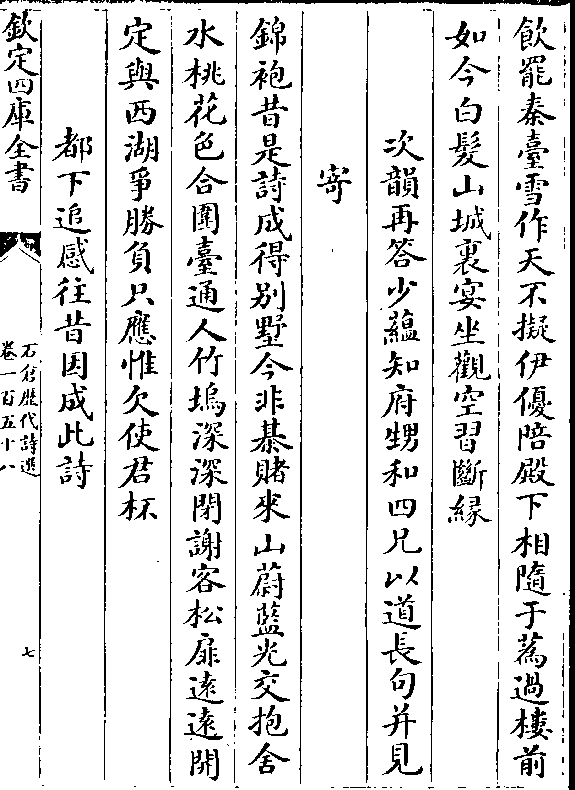 飲罷秦臺雪作天不擬伊優陪殿下相隨于蒍過樓前
如今白髮山城裏宴坐觀空習斷緣
次韻再答少藴知府甥和四兄以道長句并見
寄
錦袍昔是詩成得别墅今非棊賭來山蔚藍光交抱舍
水桃花色合圍臺通人竹塢深深閉謝客松扉遠遠開
定與西湖爭勝負只應惟欠使君杯
都下追感往昔因成此詩
欽定四庫全書
石倉歴代詩選
卷一百五十八
七